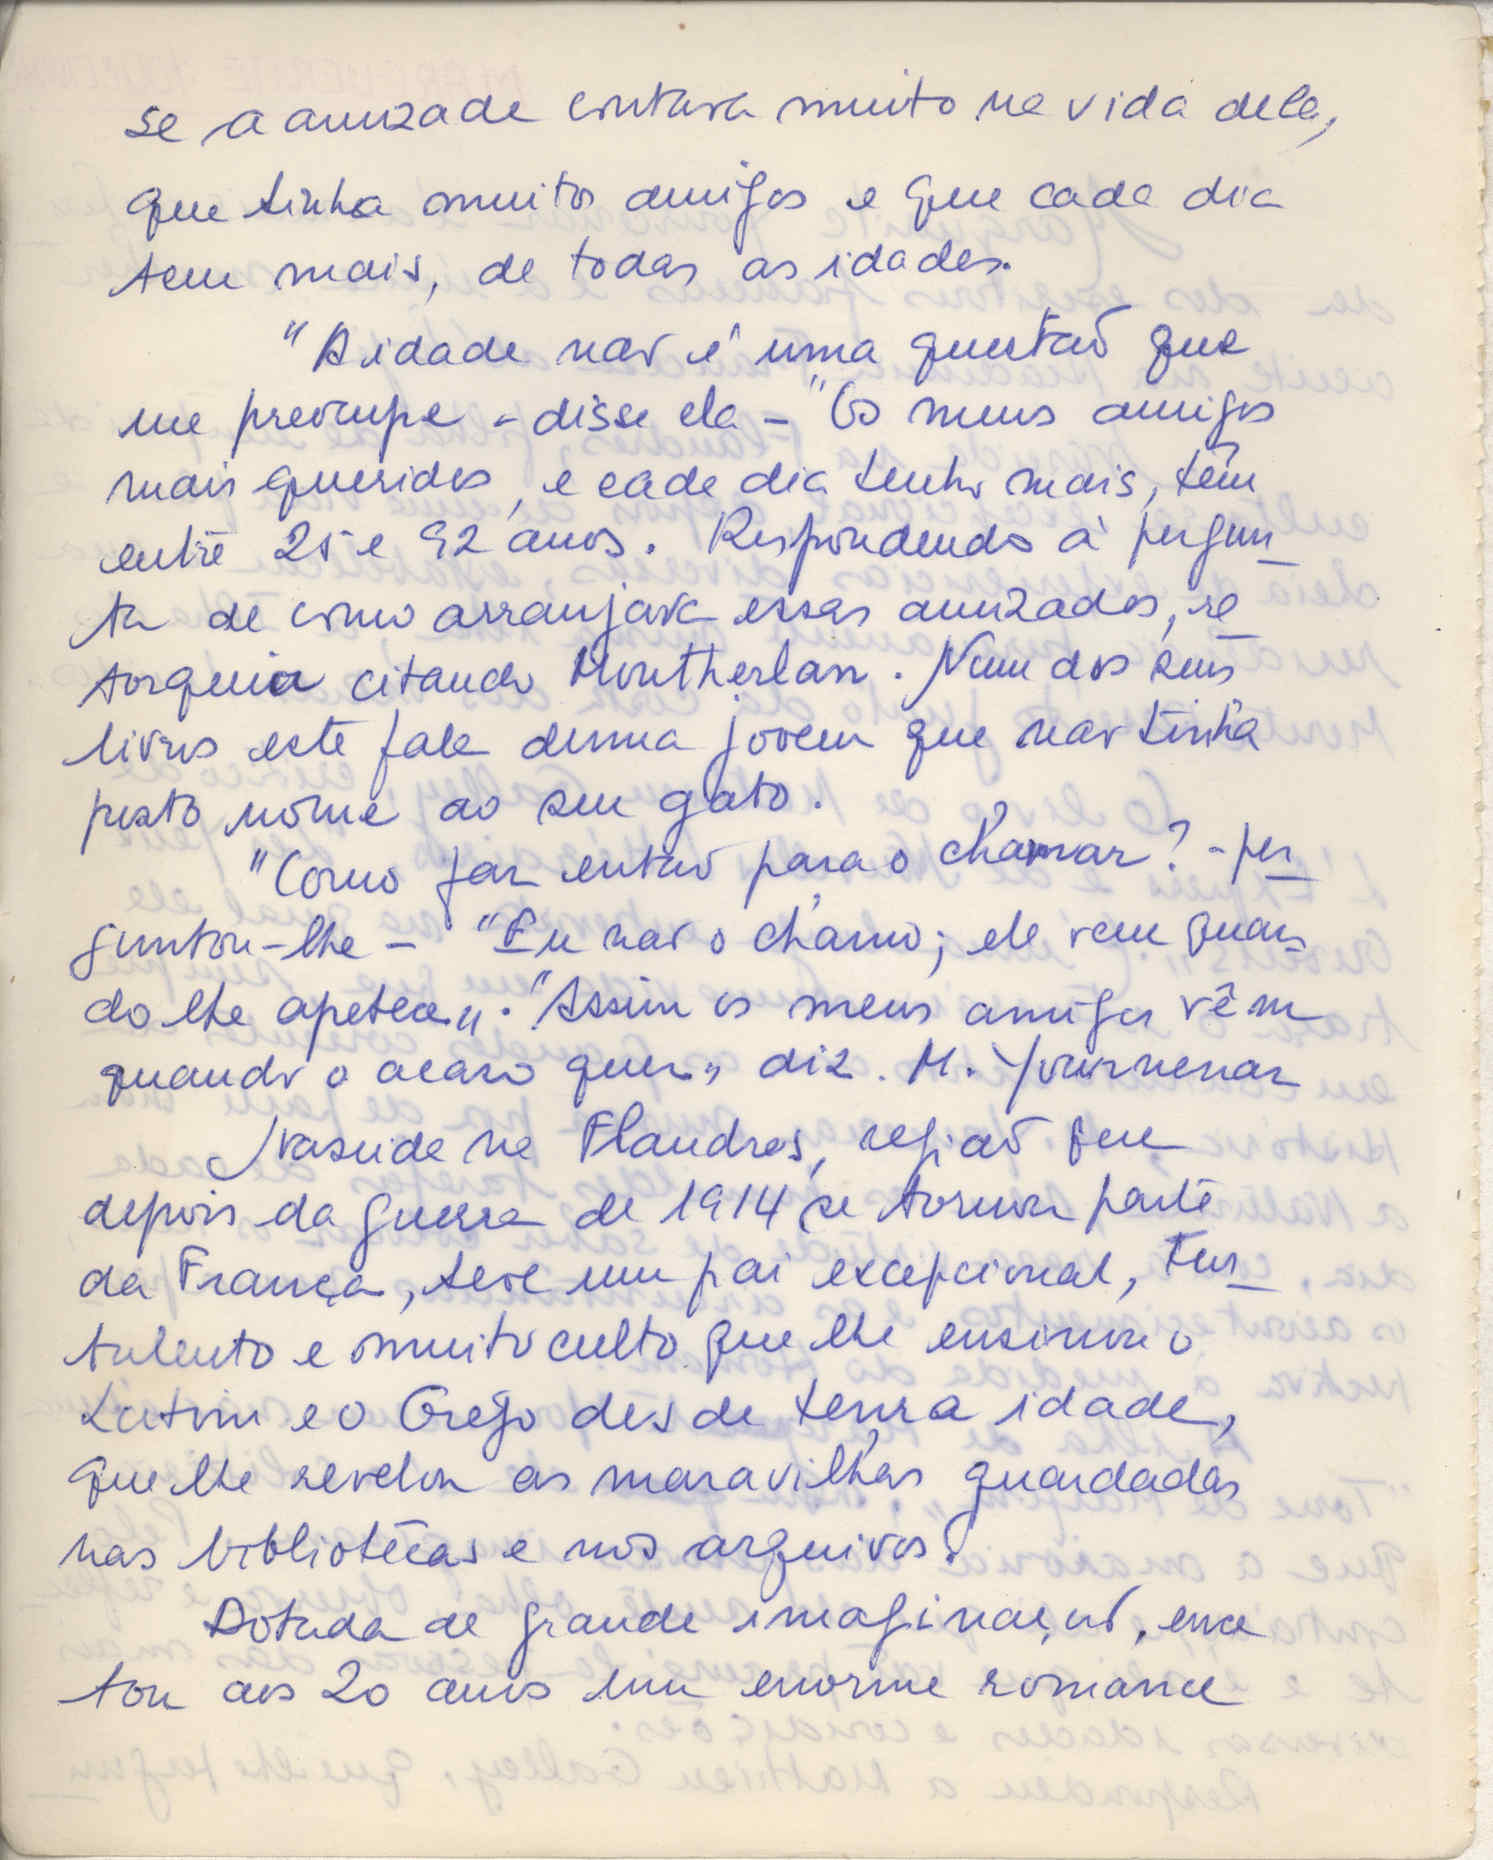 se a amizade contava muito na vida dela,
que tinha muitos amigos e que cada dia
tem mais, de todas as idades.
"A idade não é uma questão que
me preocupe - disse ela - "Os meus amigos
mais queridos, e cada dia tenho mais, têm
entre 25 e 92 anos. Respondendo à pergun_
ta de como arranjava essas amizades, re_
torquia citando Montherlan. Num dos seus
livros este fala duma jovem que não tinha
posto nome ao seu gato.
"Como faz então para o chamar? - per_
guntou-lhe - "Eu não o chamo; ele vem quan_
do lhe apetece". "Assim os meus amigos vêm
quando o acaso quer" diz M. Yournenar
Nascida na Flandres, região que
depois da guerra de 1914 se tornou parte
da França, teve um pai excepcional, tur_
tulento e muito culto que lhe ensinou o
Latim e o Grego desde tenra idade,
que lhe revelou as maravilhas guardadas
nas bibliotécas e nos arquivos.
Dotada de grande imaginação, ence
tou aos 20 anos um enorme romance